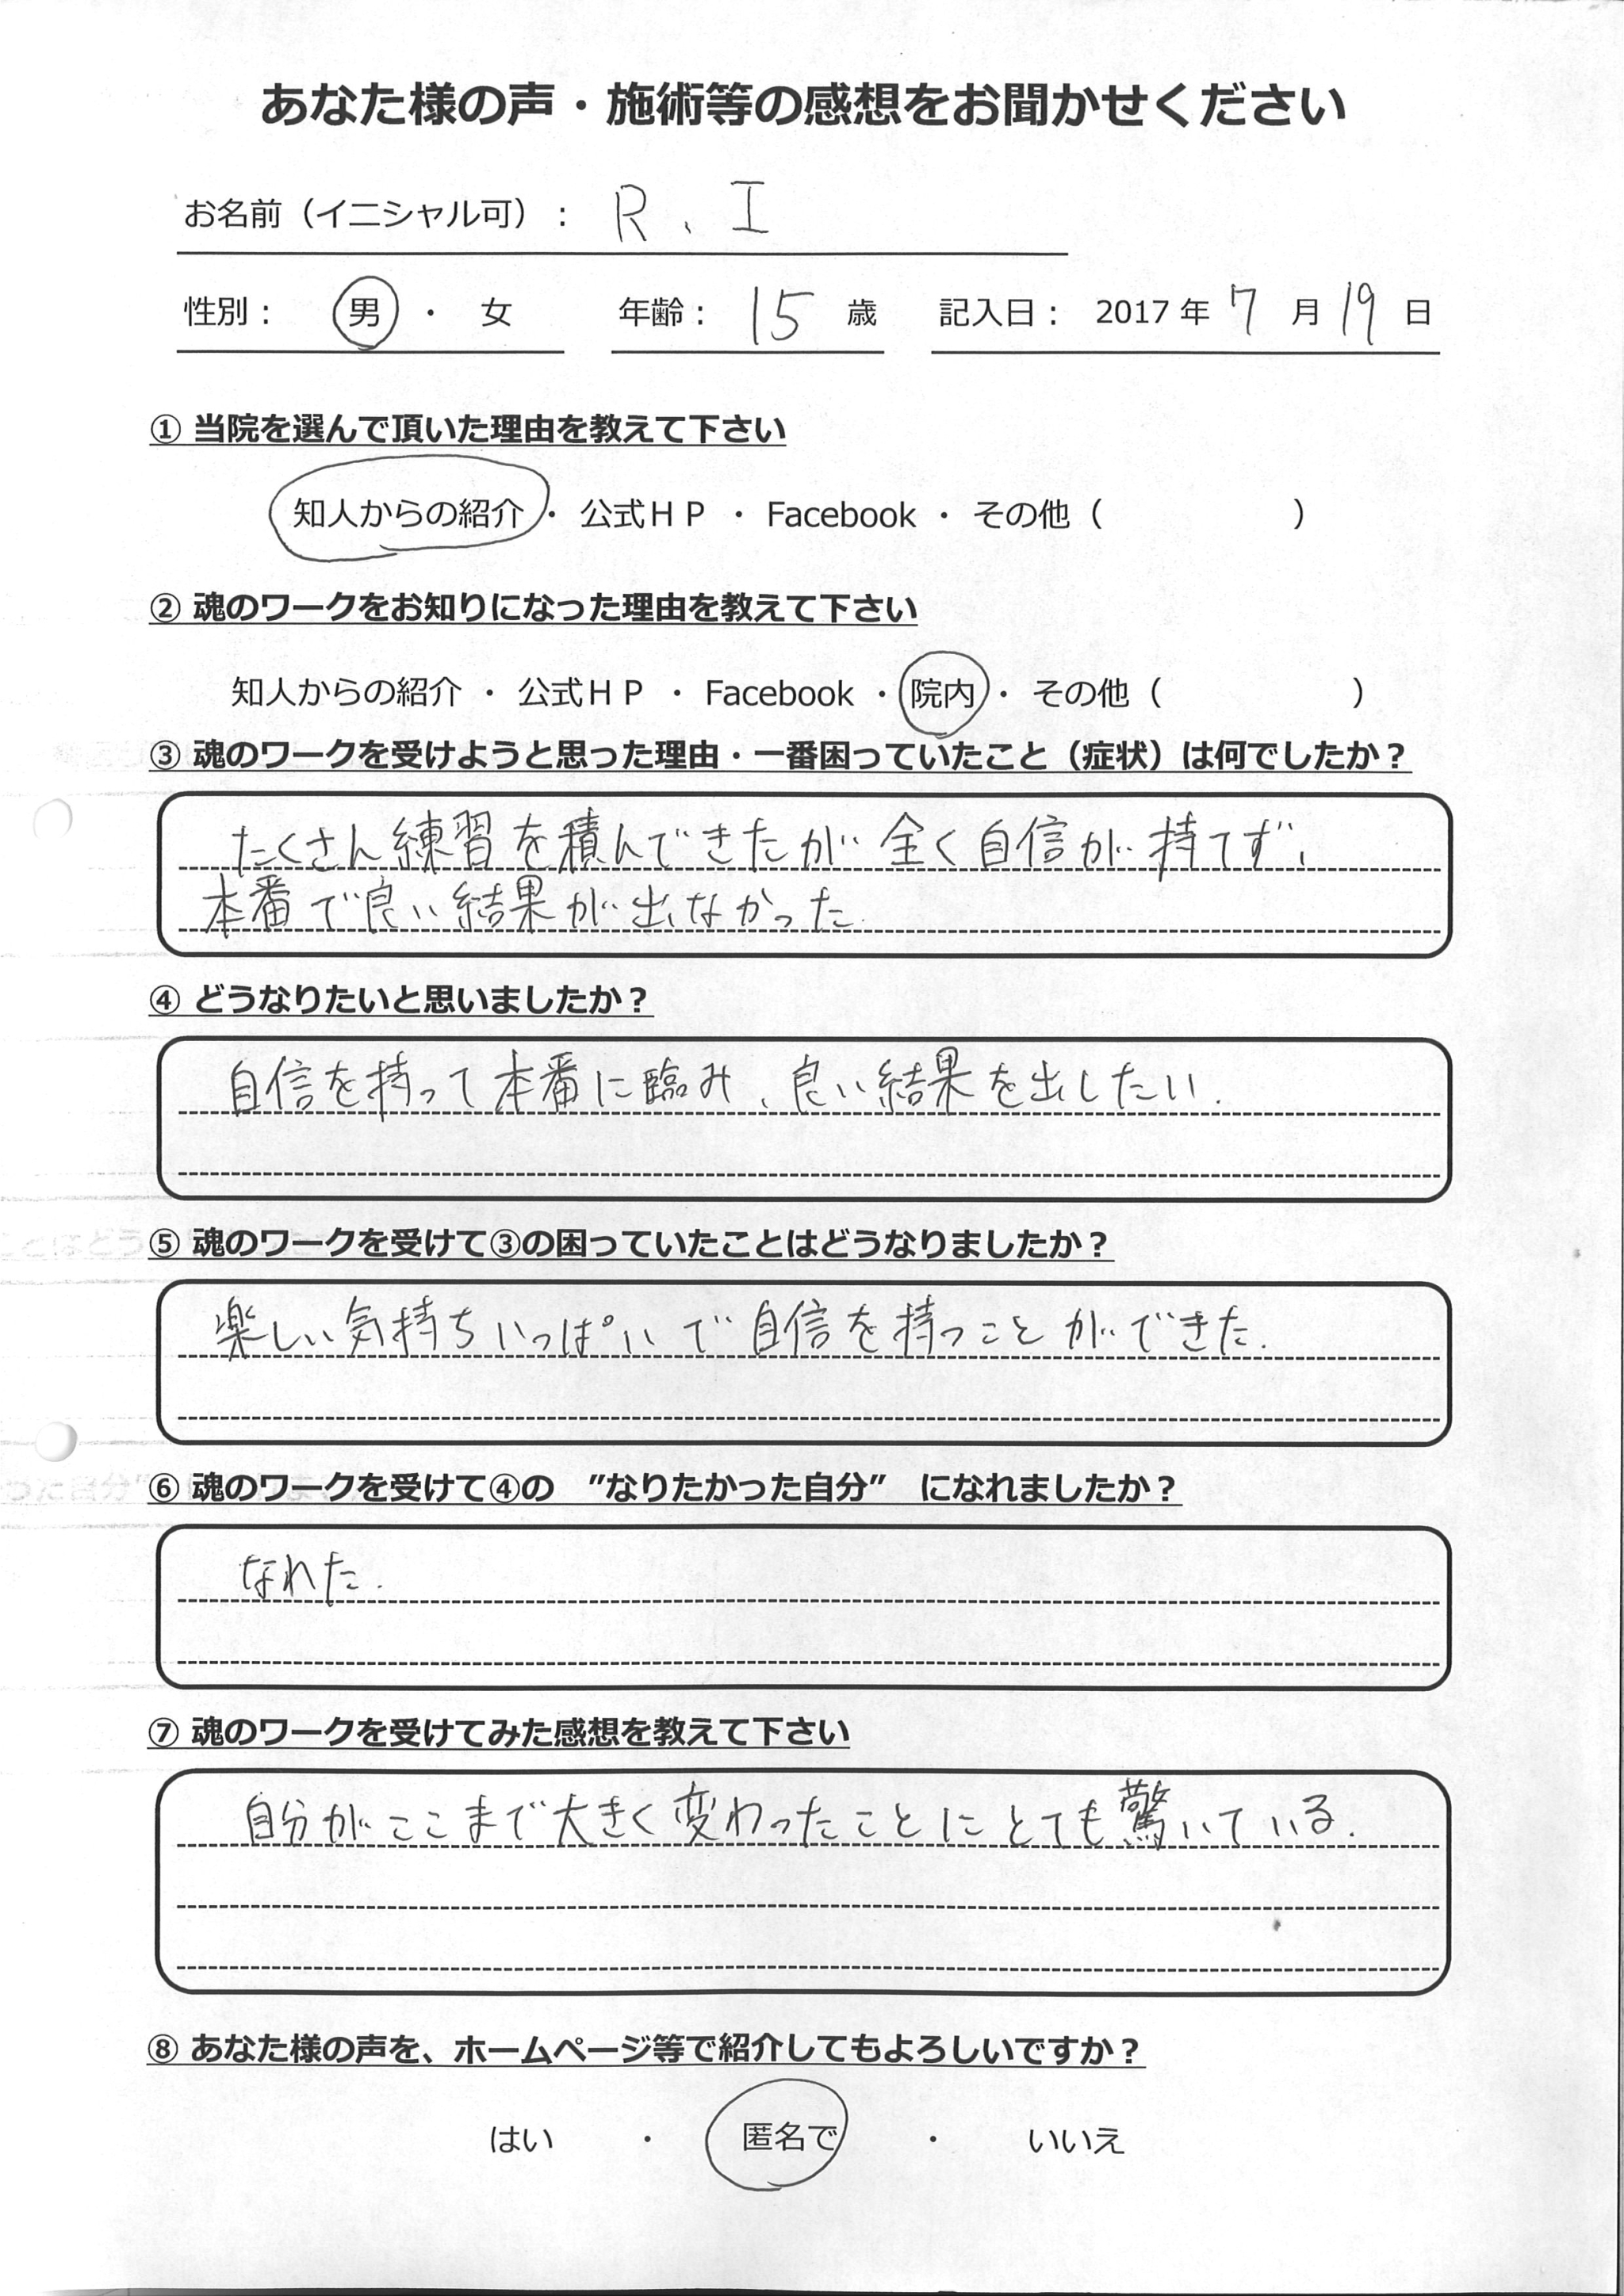 あなた様の声・施術等の感想をお聞かせください
お名前（イニシャル可）： R、I
性別： 男 ・ 女 年齢： 15 歳 記入日： 2017 年 7 月 19 日
① 当院を選んで頂いた理由を教えて下さい
知人からの紹介 ・ 公式ＨＰ ・ Facebook ・ その他（ ）
② 魂のワークをお知りになった理由を教えて下さい
知人からの紹介 ・ 公式ＨＰ ・ Facebook ・ 院内 ・ その他（ ）
③ 魂のワークを受けようと思った理由・一番困っていたこと（症状）は何でしたか？
たくさん練習を積んできたが全く自信が持てず、
本番で良い結果が出なかった.
④ どうなりたいと思いましたか？
自信を持って本番に臨み、良い結果を出したい.
⑤ 魂のワークを受けて③の困っていたことはどうなりましたか？
楽しい気持ちいっぱいで自信を持つことができた.
⑥ 魂のワークを受けて④の ”なりたかった自分” になれましたか？
なれた.
⑦ 魂のワークを受けてみた感想を教えて下さい
自分がここまで大きく変わったことにとても驚いている.
⑧ あなた様の声を、ホームページ等で紹介してもよろしいですか？
はい ・ 匿名で ・ いいえ